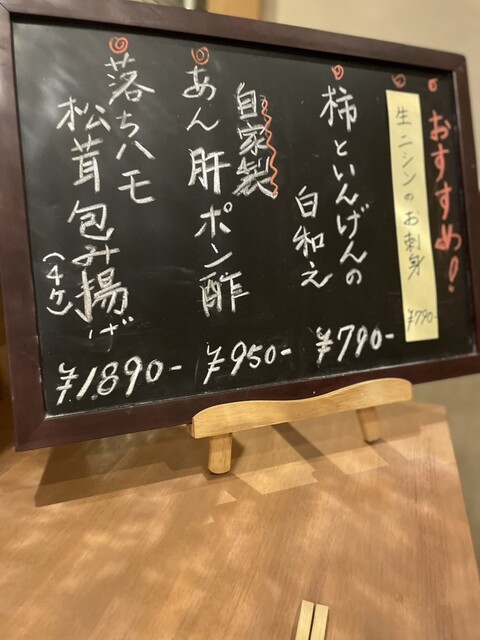 おすすめ!
生ニシンのお刺身
¥790-
柿といんげんの
白和え
¥790-
自家製
あん肝ポン酢
¥950-
落ちハモ
松茸包み揚げ
(4ケ)
¥1,890-